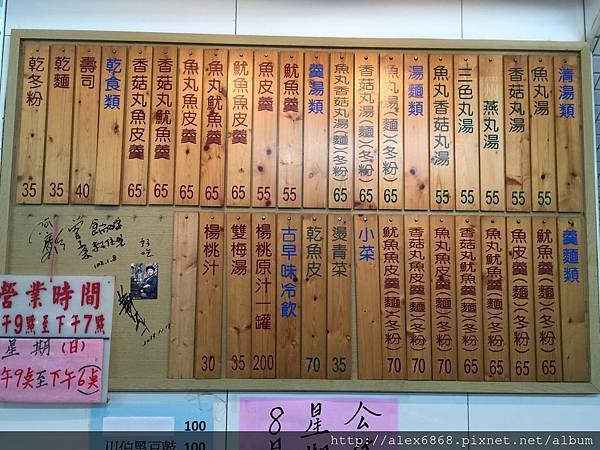 清湯類
魚丸湯 55
香菇丸湯 55
燕丸湯 55
三色丸湯 55
魚丸香菇丸湯 55
湯麵類
魚丸湯(麵)(冬粉) 65
香菇丸湯(麵)(冬粉) 65
魚丸香菇丸湯(麵)(冬粉) 65
羹湯類
魷魚羹 55
魚皮羹 55
魷魚魚皮羹 65
魚丸魷魚羹 65
魚丸魚皮羹 65
香菇丸魷魚羹 65
香菇丸魚皮羹 65
乾食類
壽司 40
乾麵 35
乾冬粉 35
羹麵類
魷魚羹(麵)(冬粉) 65
魚皮羹(麵)(冬粉) 65
魚丸魷魚羹(麵)(冬粉) 65
香菇丸魷魚羹(麵)(冬粉) 65
魚丸魚皮羹(麵)(冬粉) 70
香菇丸魚皮羹(麵)(冬粉) 70
魷魚魚皮羹(麵)(冬粉) 70
小菜
燙青菜 35
乾魚皮 70
古早味冷飲
楊桃原汁一罐 200
雙梅湯 35
楊桃汁 30
好吃
102.1.8
營業時間
午9點至下午7點
星期(日)
午9点至下午6点
100
川伯黑豆鼓 100
公
星期
8月
http://alex6868.pixnet.net/album